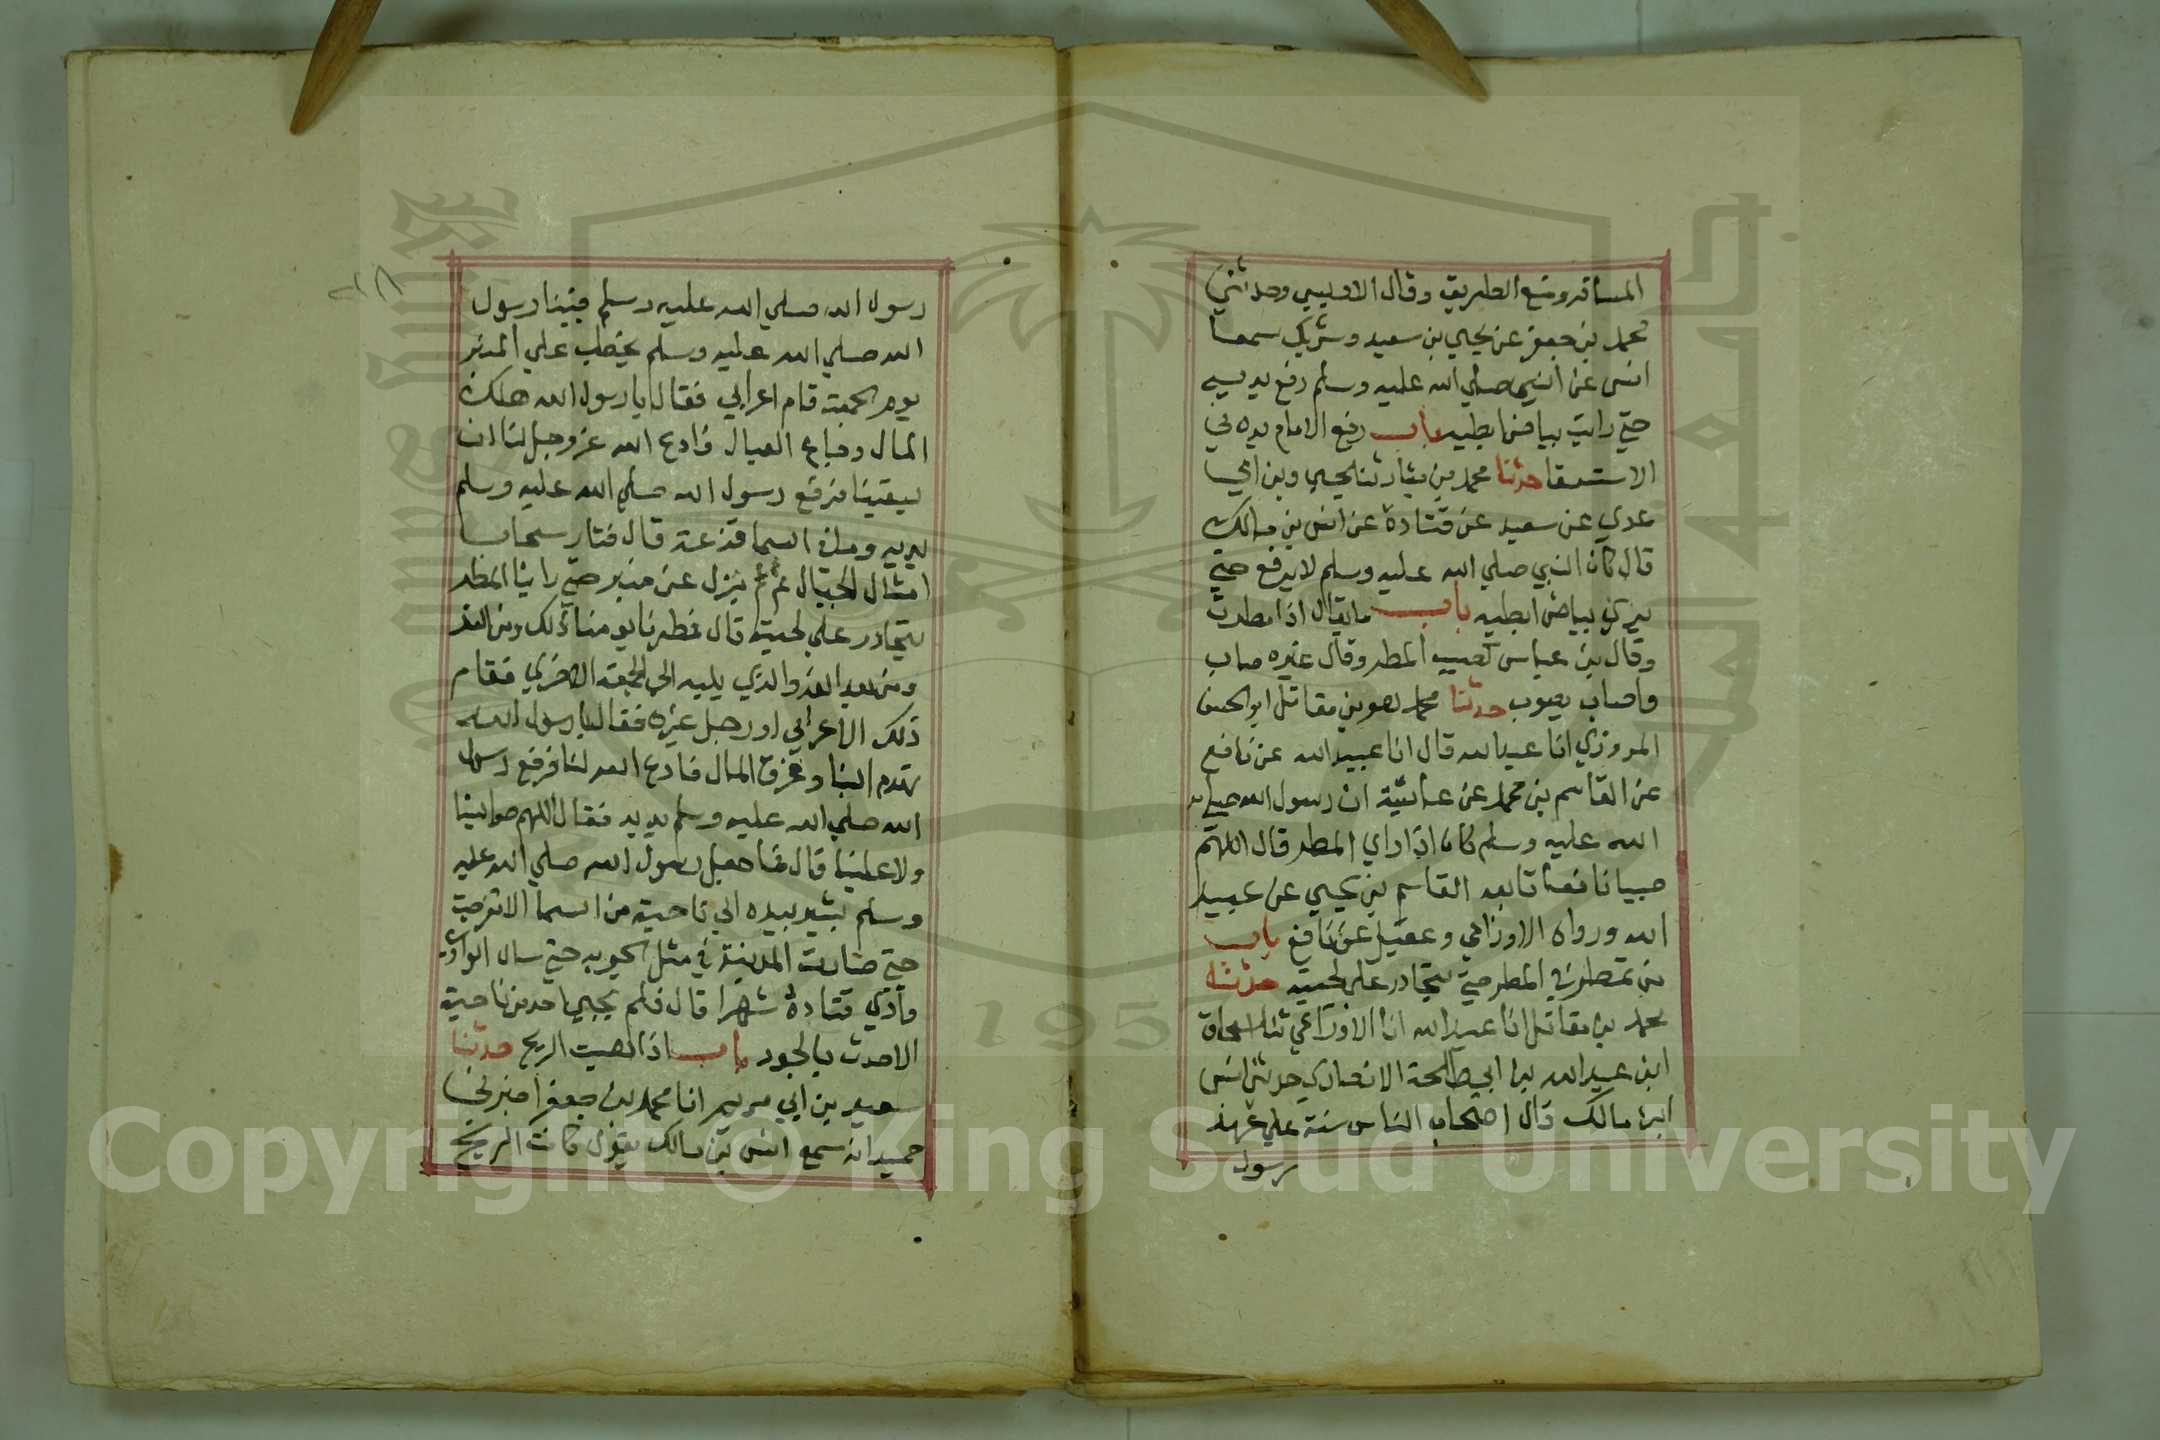 المسافر ومنع الطريق وقال الاويسي وحدثني
محمد بن جعفر عن يحيي بن سعيد وشريك سمعا
انس عن النبي صلي الله عليه وسلم رفع يديه
حتي رايت بياض ابطيه باب رفع الامام يده في
الاستسقا حدثنا محمد بن بشار ثنا يحيي وبن ابي
عدي عن سعيد عن قتادة عن انس بن مالك
قال كان النبي صلي الله عليه وسلم لا يرفع حتي
يري بياض ابطيه باب ما يقال اذا مطرت
وقال بن عباس كصيب المطر وقال غيره صاب
واصاب يصوب حدثنا محمد هو بن مقاتل ابو الحسن
المروزي انا عبدالله قال انا عبيدالله عن نافع
عن القاسم بن محمد عن عائشة ان رسول الله صلي
الله عليه وسلم كان اذا راي المطر قال اللهم
صيبا نافعا تابعه القاسم بن يحيي عن عبيد
الله ورواه الاوزاعي وعقيل عن نافع باب
من تمطر في المطر حتي يتحادر علي لحيته حدثنا
محمد بن مقاتل انا عبدالله انا الاوزاعي ثنا اسحاق
ابن عبدالله بن ابي طلحة الانصاري حدثني انس
ابن مالك قال اصابت الناس سنة علي عهد
رسول
رسول الله صلي الله عليه وسلم فبينا رسول
الله صلي الله عليه وسلم يخطب علي المنبر
يوم الجمعة قام اعرابي فقال يا رسول الله هلك
المال وجاع العيال فادع الله عز وجل لنا ان
يسقينا فرفع رسول الله صلي الله عليه وسلم
يديه وما في السما قزعة قال فثار سحاب
امثال الجبال ثم لم ينزل عن منبره حتي راينا المطر
يتحادر علي لحيته قال فمطرنا يومنا ذلك ومن الغد
ومن بعد الغد والذي يليه الي الجمعة الاخري فقام
ذلك الاعرابي او رجل غيره فقال يا رسول الله
تهدم البنا وغرق المال فادع الله لنا فرفع رسول
الله صلي الله عليه وسلم يديه فقال اللهم حوالينا
ولا علينا قال فما جعل رسول الله صلي الله عليه
وسلم يشير بيده الي ناحية من السما الا تفرجت
حتي صارت المدينة في مثل الجوبه حتي سال الوادي
وادي قناة شهرا قال فلم يجيي احد من ناحية
الا حدث بالجود باب اذا هبت الريح حدثنا
سعيد بن ابي مريم انا محمد بن جعفر اخبرني
حميد انه سمع انس بن مالك يقول كانت الريح
Copyright © King Saud University
1957